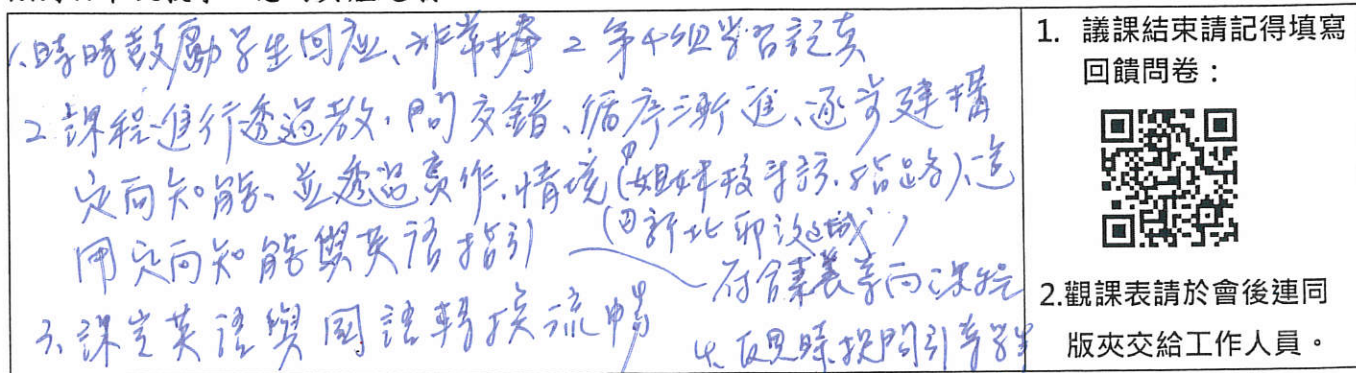 1、時時鼓勵學生回應、非常棒 2 第4組學習認真
2 課程進行透過教、問交錯、循序漸進、逐步建構
定向知能、並透過實作、情境(①姐妹校到訪.指路)運
用定向知能與英語指引 (②新北耶誕城)
符合素養導向課程
3、課堂英語與國語轉換流暢
4、適時提問引導學生
1. 議課結束請記得填寫
回饋問卷：
2.觀課表請於會後連同
版夾交給工作人員。